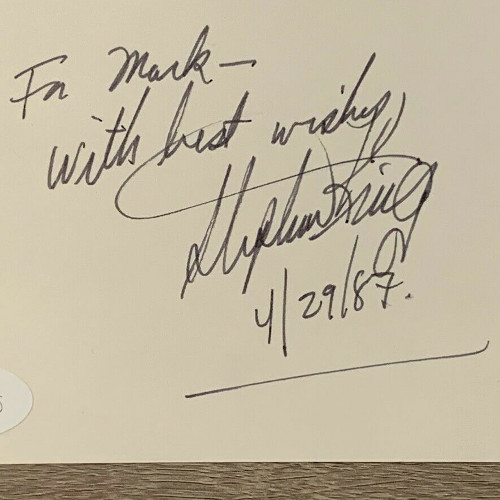 For Mark —
with best wishes,
Stephen King
4/29/87.